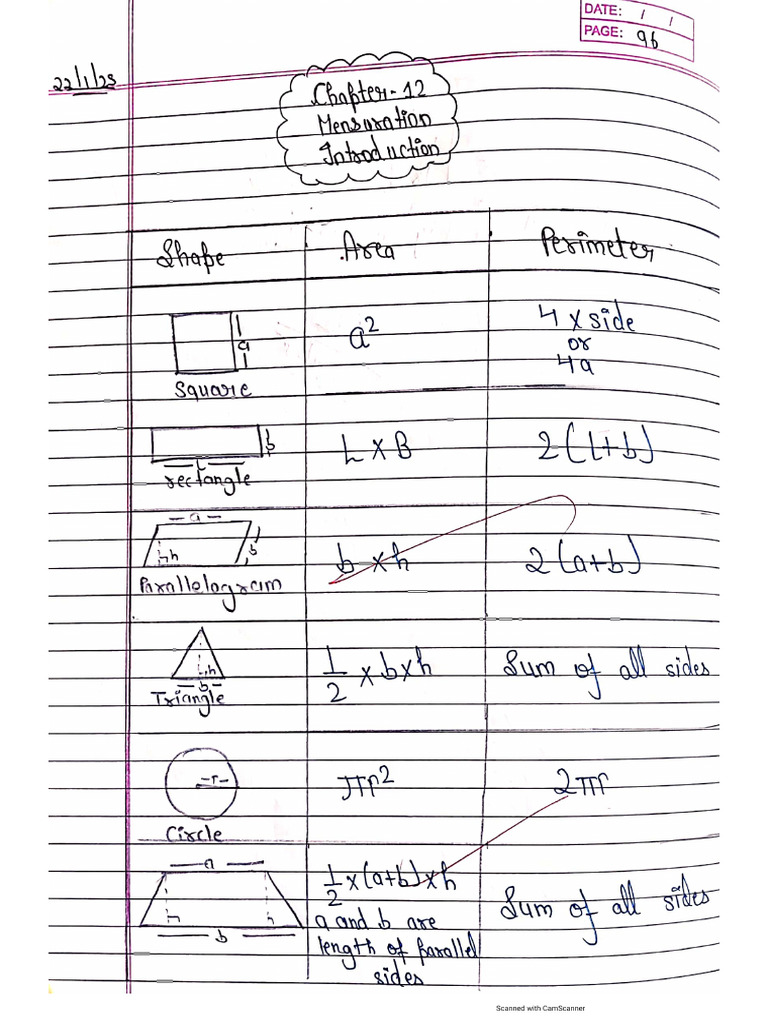 DATE: / /
PAGE: 96
22/1/25
Chapter-12
Mensuration
Introduction
Shape Area Perimeter
a
Square
a²
4 x side
or
4a
b
L
rectangle
L x B
2(l+b)
a
h b
Parallelogram
b x h
2(a+b)
h
b
Triangle
1/2 x b x h
Sum of all sides
r
Circle
πr²
2πr
a
h h
b
1/2 x (a+b) x h
a and b are
length of parallel
sides
Sum of all sides
Scanned with CamScanner